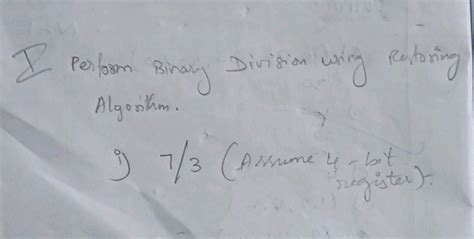 I Perform Binary Division using Restoring
Algorithm.
i) 7/3 (Assume 4-bit
register).